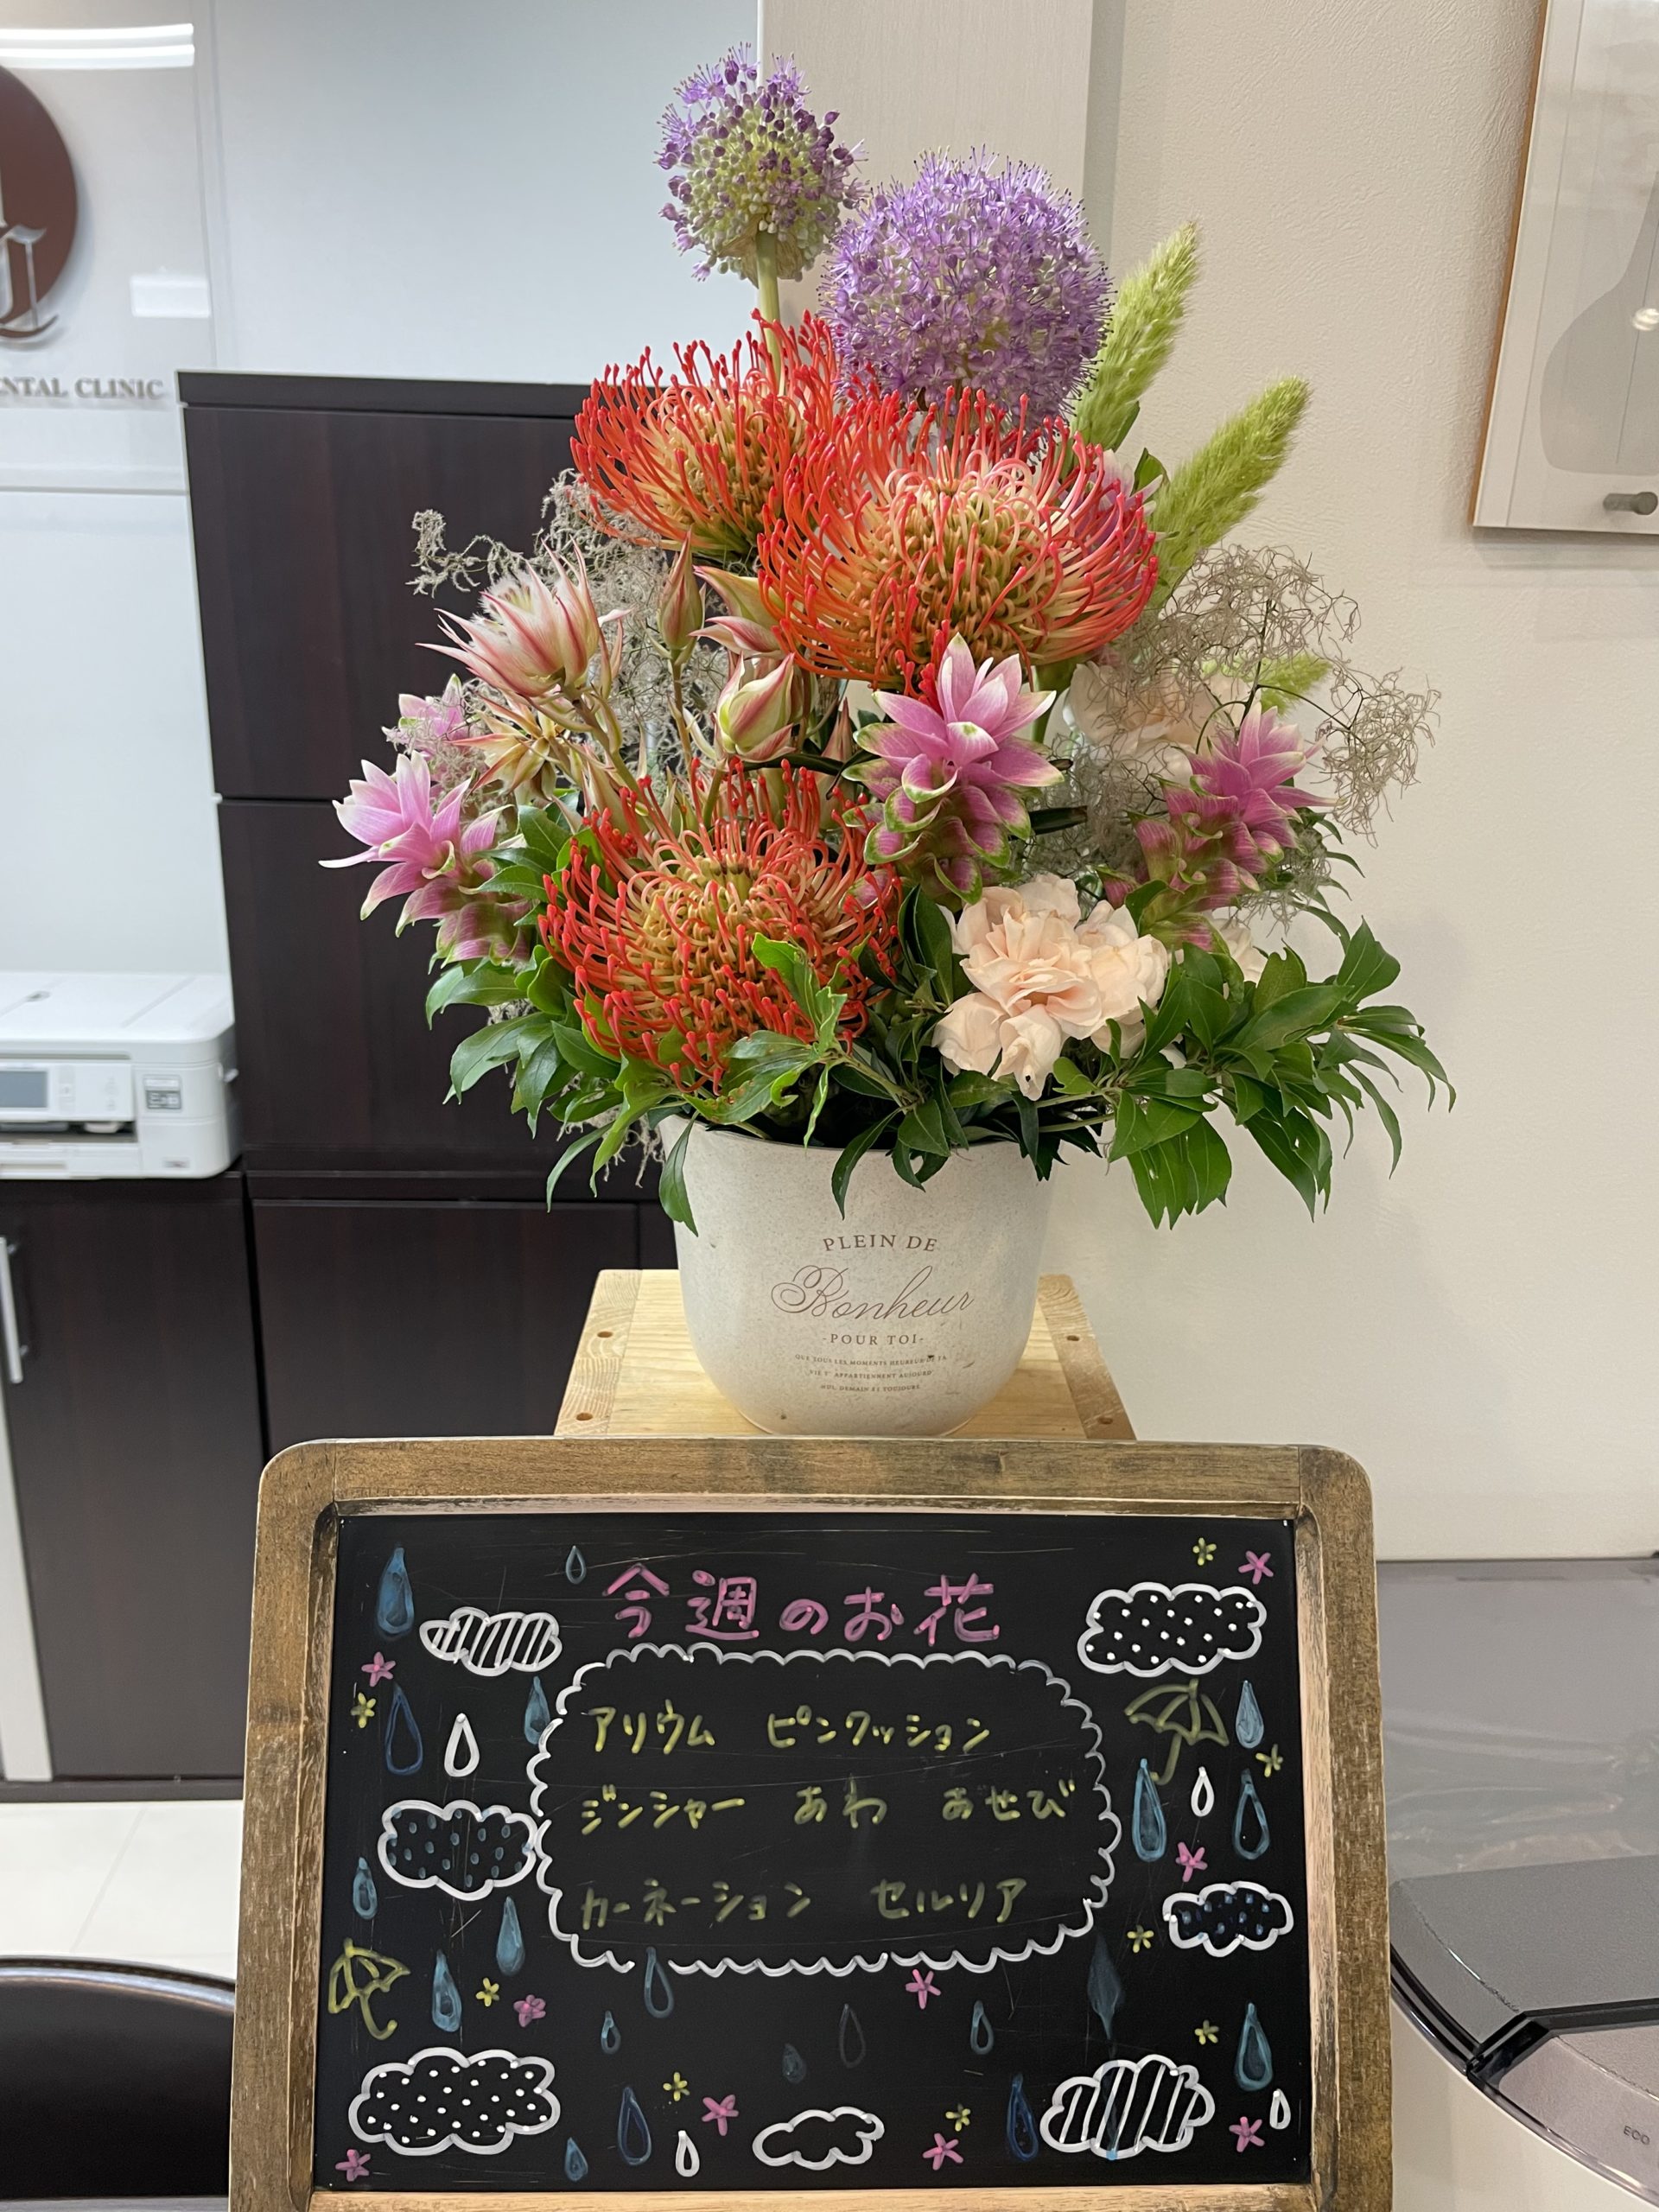 ENTAL CLINIC
PLEIN DE
Bonheur
-POUR TOI-
QUE TOUS LES MOMENTS HEUREUX DE TA
VIE T' APPARTIENNENT AUJOURD'
HUI, DEMAIN ET TOUJOURS
今週のお花
アリウム ピンクッション
ジンジャー あわ あせび
カーネーション セルリア
ECO